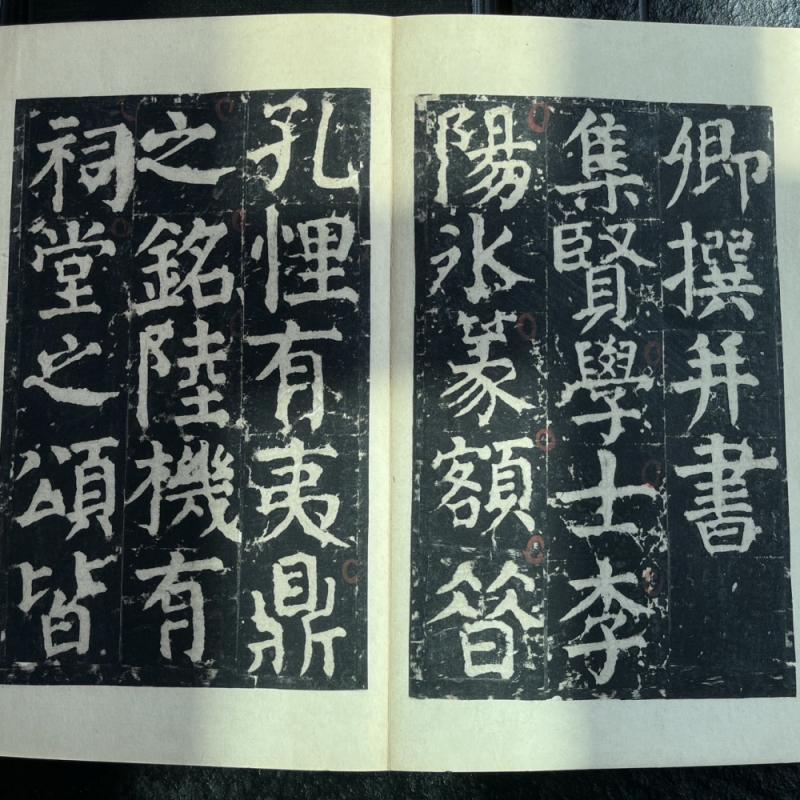 卿撰并書
集賢學士李
陽冰篆額晉
孔悝有夷鼎
之銘陸機有
祠堂之頌皆